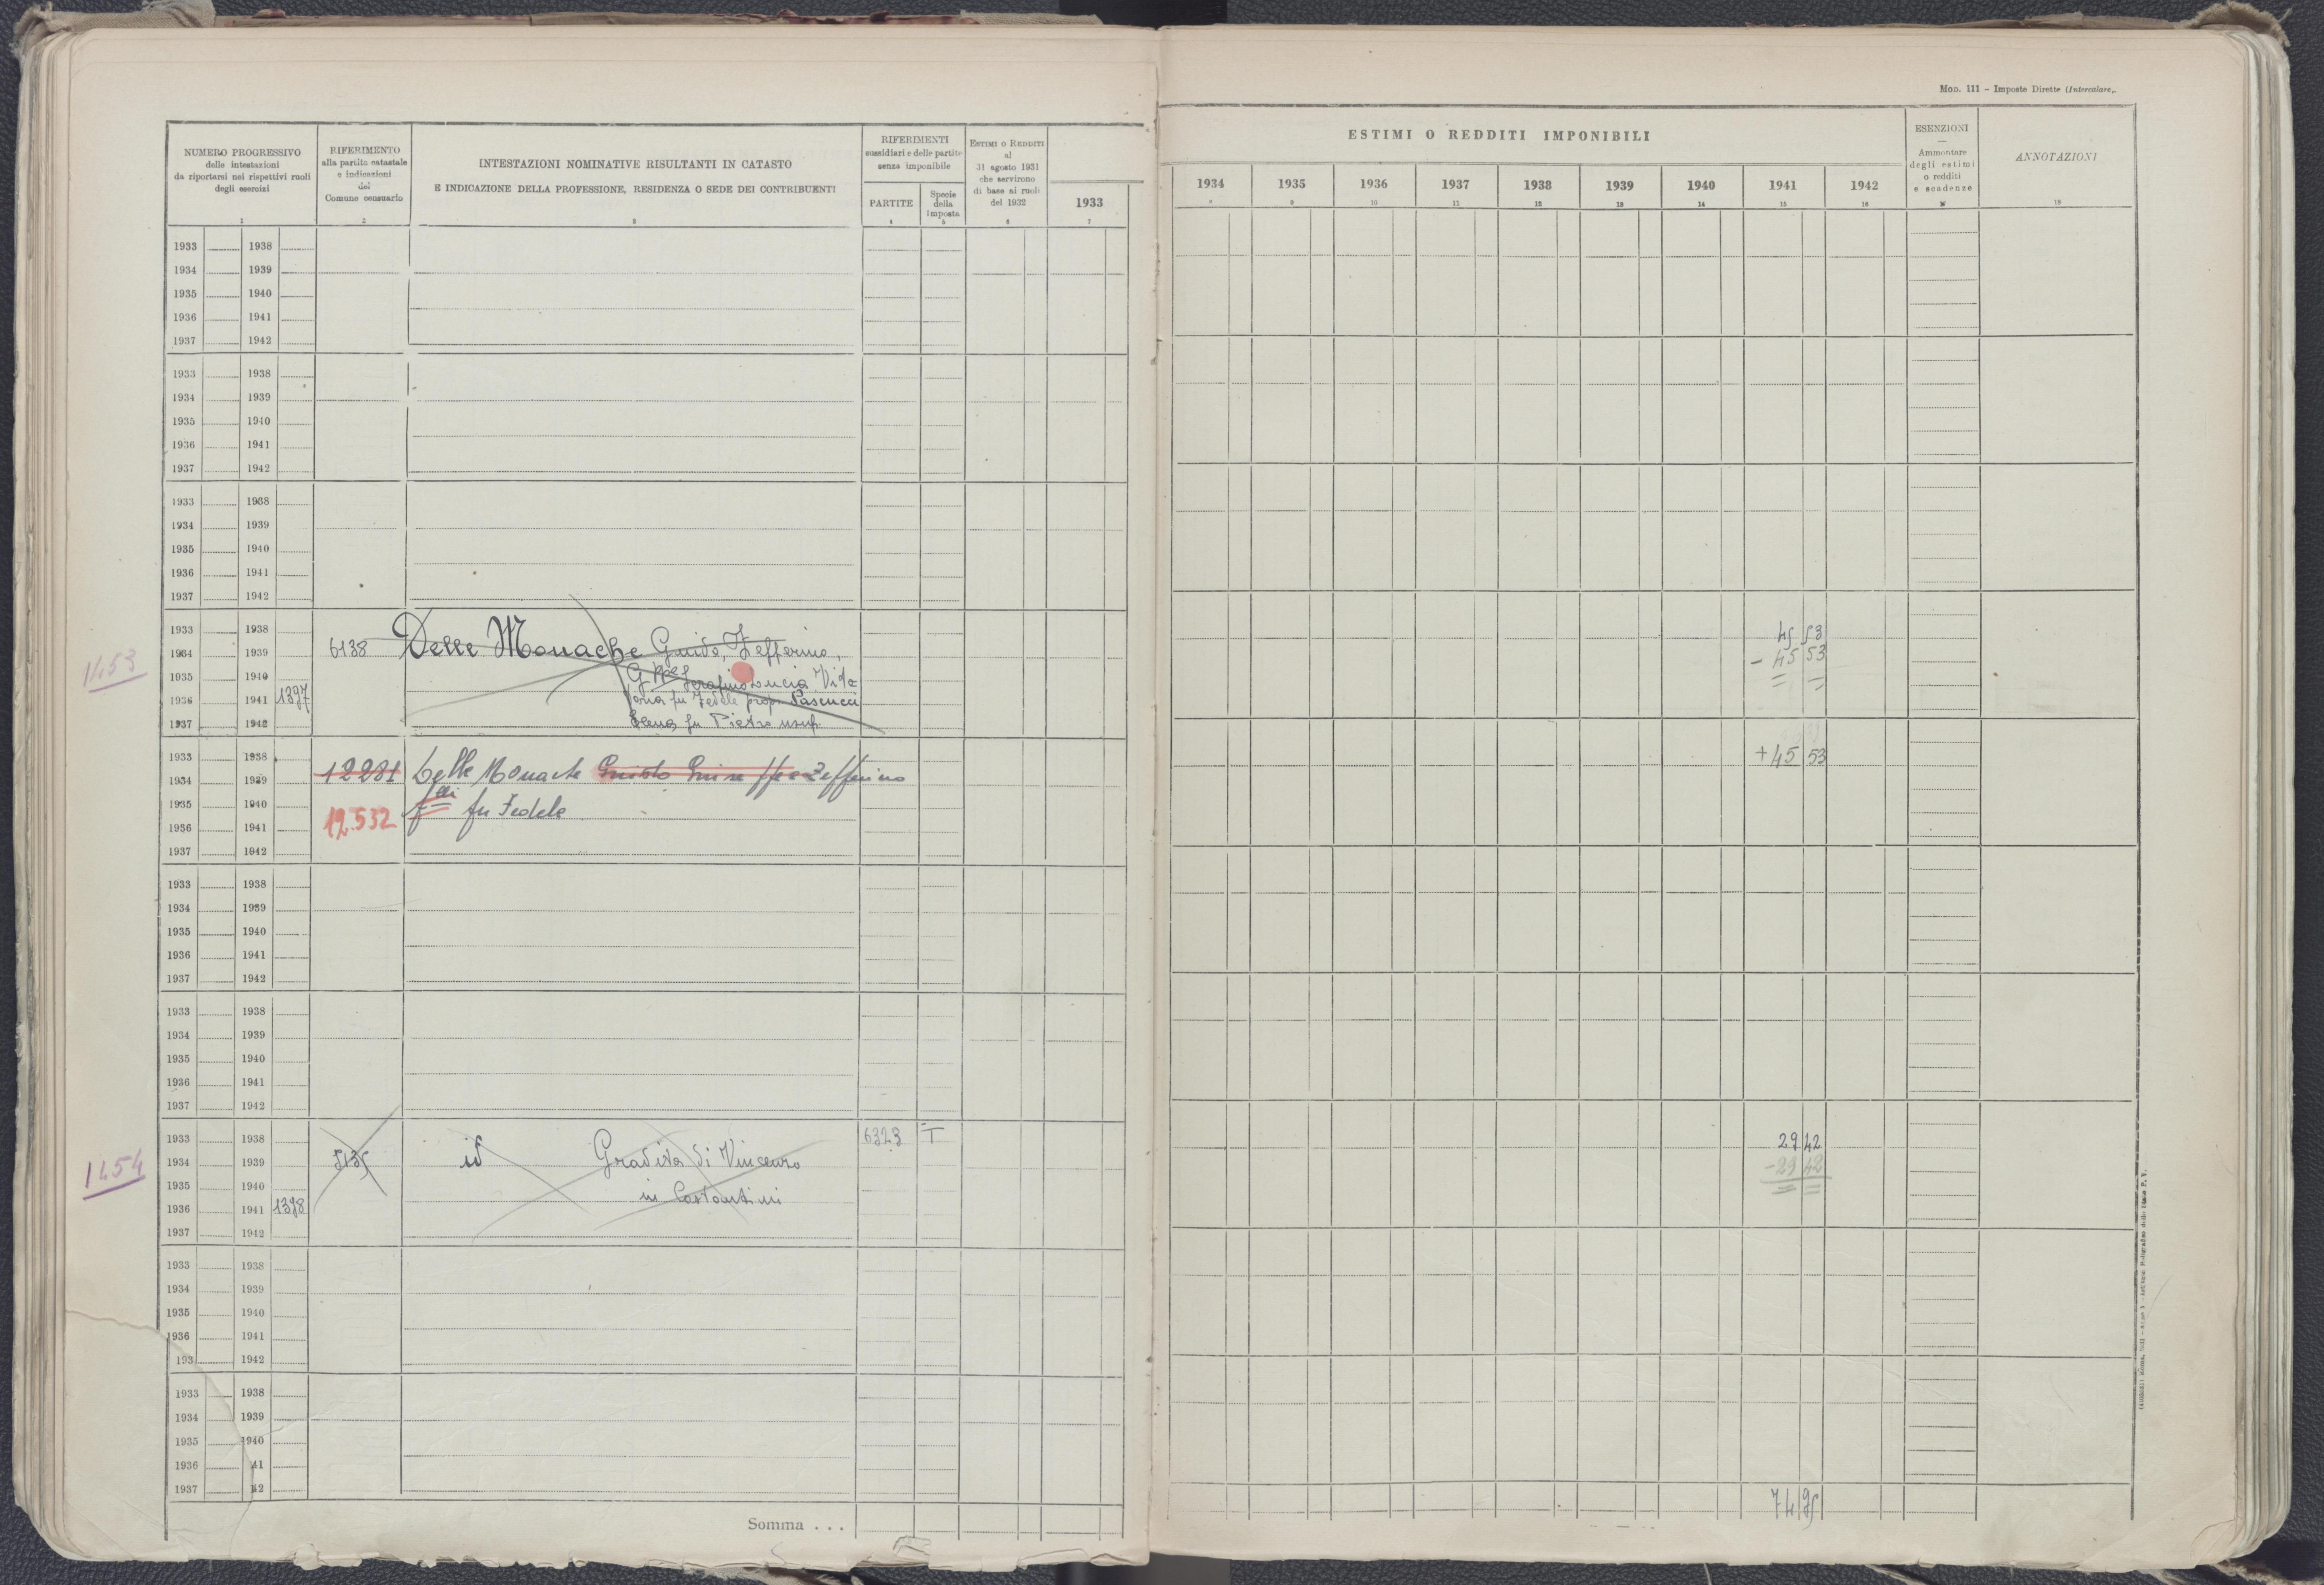 Mod. 111 - Imposte Dirette (Intercalare).
NUMERO PROGRESSIVO
delle intestazioni
da riportarsi nei rispettivi ruoli
degli esercizi
1
RIFERIMENTO
alla partita catastale
e indicazioni
del
Comune censuario
2
INTESTAZIONI NOMINATIVE RISULTANTI IN CATASTO
E INDICAZIONE DELLA PROFESSIONE, RESIDENZA O SEDE DEI CONTRIBUENTI
3
RIFERIMENTI
sussidiari e delle partite
senza imponibile
PARTITE
4
Specie
della
imposta
5
ESTIMI O REDDITI
al
31 agosto 1931
che servirono
di base ai ruoli
del 1932
6
1933
7
ESTIMI O REDDITI IMPONIBILI
1934 1935 1936 1937 1938 1939 1940 1941 1942
8 9 10 11 12 13 14 15 16
ESENZIONI
Ammontare
degli estimi
o redditi
e scadenze
ANNOTAZIONI
18
1933 1938
1934 1939
1935 1940
1936 1941
1937 1942
1933 1938
1934 1939
1935 1940
1936 1941
1937 1942
1933 1938
1934 1939
1935 1940
1936 1941
1937 1942
1453
1933 1938 45 53
1934 1939 6138 Delle Monache Guido, Zefferino, - 45 53
1935 1940 Serafino Lucia Vitto
1936 1941 1397 ria fu Fedele prop. Pascucci
1937 1942 Elena fu Pietro usuf.
1933 1938 + 45 53
1934 1939 12281 Delle Monache Guido Giuseppe Zefferino
1935 1940 f.lli fu Fedele
1936 1941 12.532
1937 1942
1933 1938
1934 1939
1935 1940
1936 1941
1937 1942
1933 1938
1934 1939
1935 1940
1936 1941
1937 1942
1454
1933 1938 6323 T 29 42
1934 1939 5135 id Gradita di Vincenzo - 29 42
1935 1940
1936 1941 1398 in Costantini
1937 1942
1933 1938
1934 1939
1935 1940
1936 1941
193 1942
1933 1938
1934 1939
1935 1940
1936 41
1937 42
Somma . . . 74 95